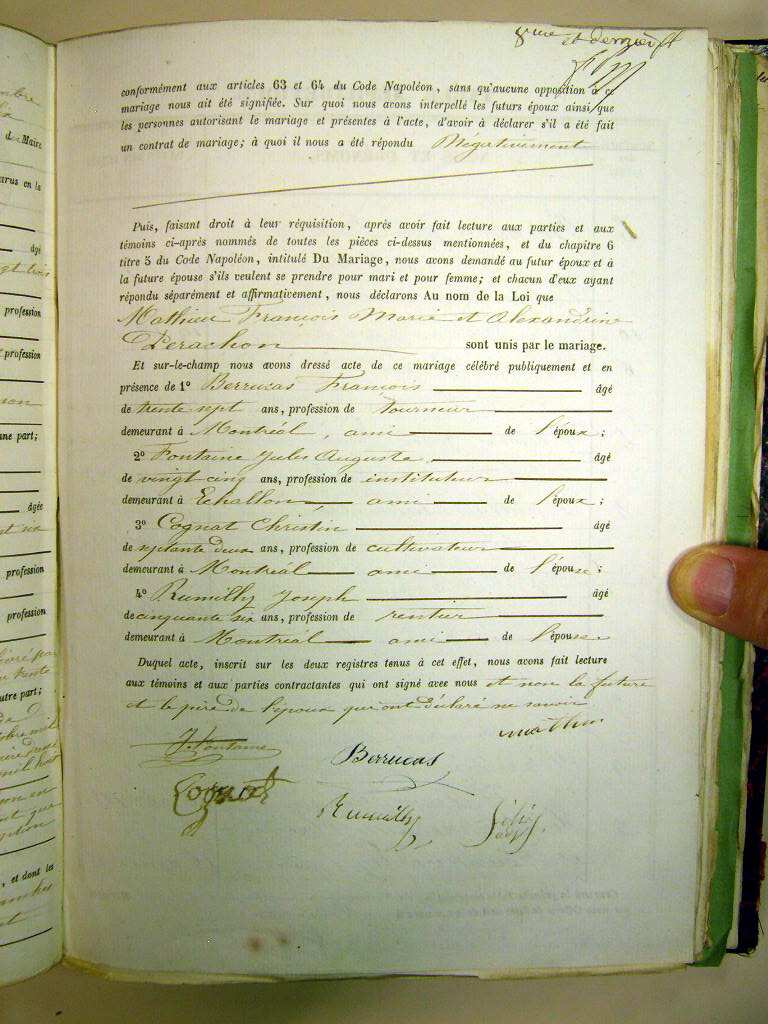 et dernier
conformément aux articles 63 et 64 du Code Napoléon, sans qu'aucune opposition à ce
mariage nous ait été signifiée. Sur quoi nous avons interpellé les futurs époux ainsi que
les personnes autorisant le mariage et présentes à l'acte, d'avoir à déclarer s'il a été fait
un contrat de mariage; à quoi il nous a été répondu Négativement
Puis, faisant droit à leur réquisition, après avoir fait lecture aux parties et aux
témoins ci-après nommés de toutes les pièces ci-dessus mentionnées, et du chapitre 6
titre 5 du Code Napoléon, intitulé Du Mariage, nous avons demandé au futur époux et à
la future épouse s'ils veulent se prendre pour mari et pour femme; et chacun d'eux ayant
répondu séparément et affirmativement, nous déclarons Au nom de la Loi que
Mathieu François Marie et Alexandrine
Perachon sont unis par le mariage.
Et sur-le-champ nous avons dressé acte de ce mariage célébré publiquement et en
présence de 1° Berrucas François âgé
de trente sept ans, profession de tourneur
demeurant à Montréal, ami de l'époux;
2° Fontaine Jules Auguste âgé
de vingt cinq ans, profession de instituteur
demeurant à Echallon ami de l'époux;
3° Cognat Christin âgé
de septante deux ans, profession de cultivateur
demeurant à Montréal ami de l'épouse;
4° Rumilly Joseph âgé
de cinquante six ans, profession de rentier
demeurant à Montréal ami de l'épouse
Duquel acte, inscrit sur les deux registres tenus à cet effet, nous avons fait lecture
aux témoins et aux parties contractantes qui ont signé avec nous et non la future
et le père de l'époux qui ont déclaré ne savoir
J. Fontaine Berrucas
Cognat Rumilly